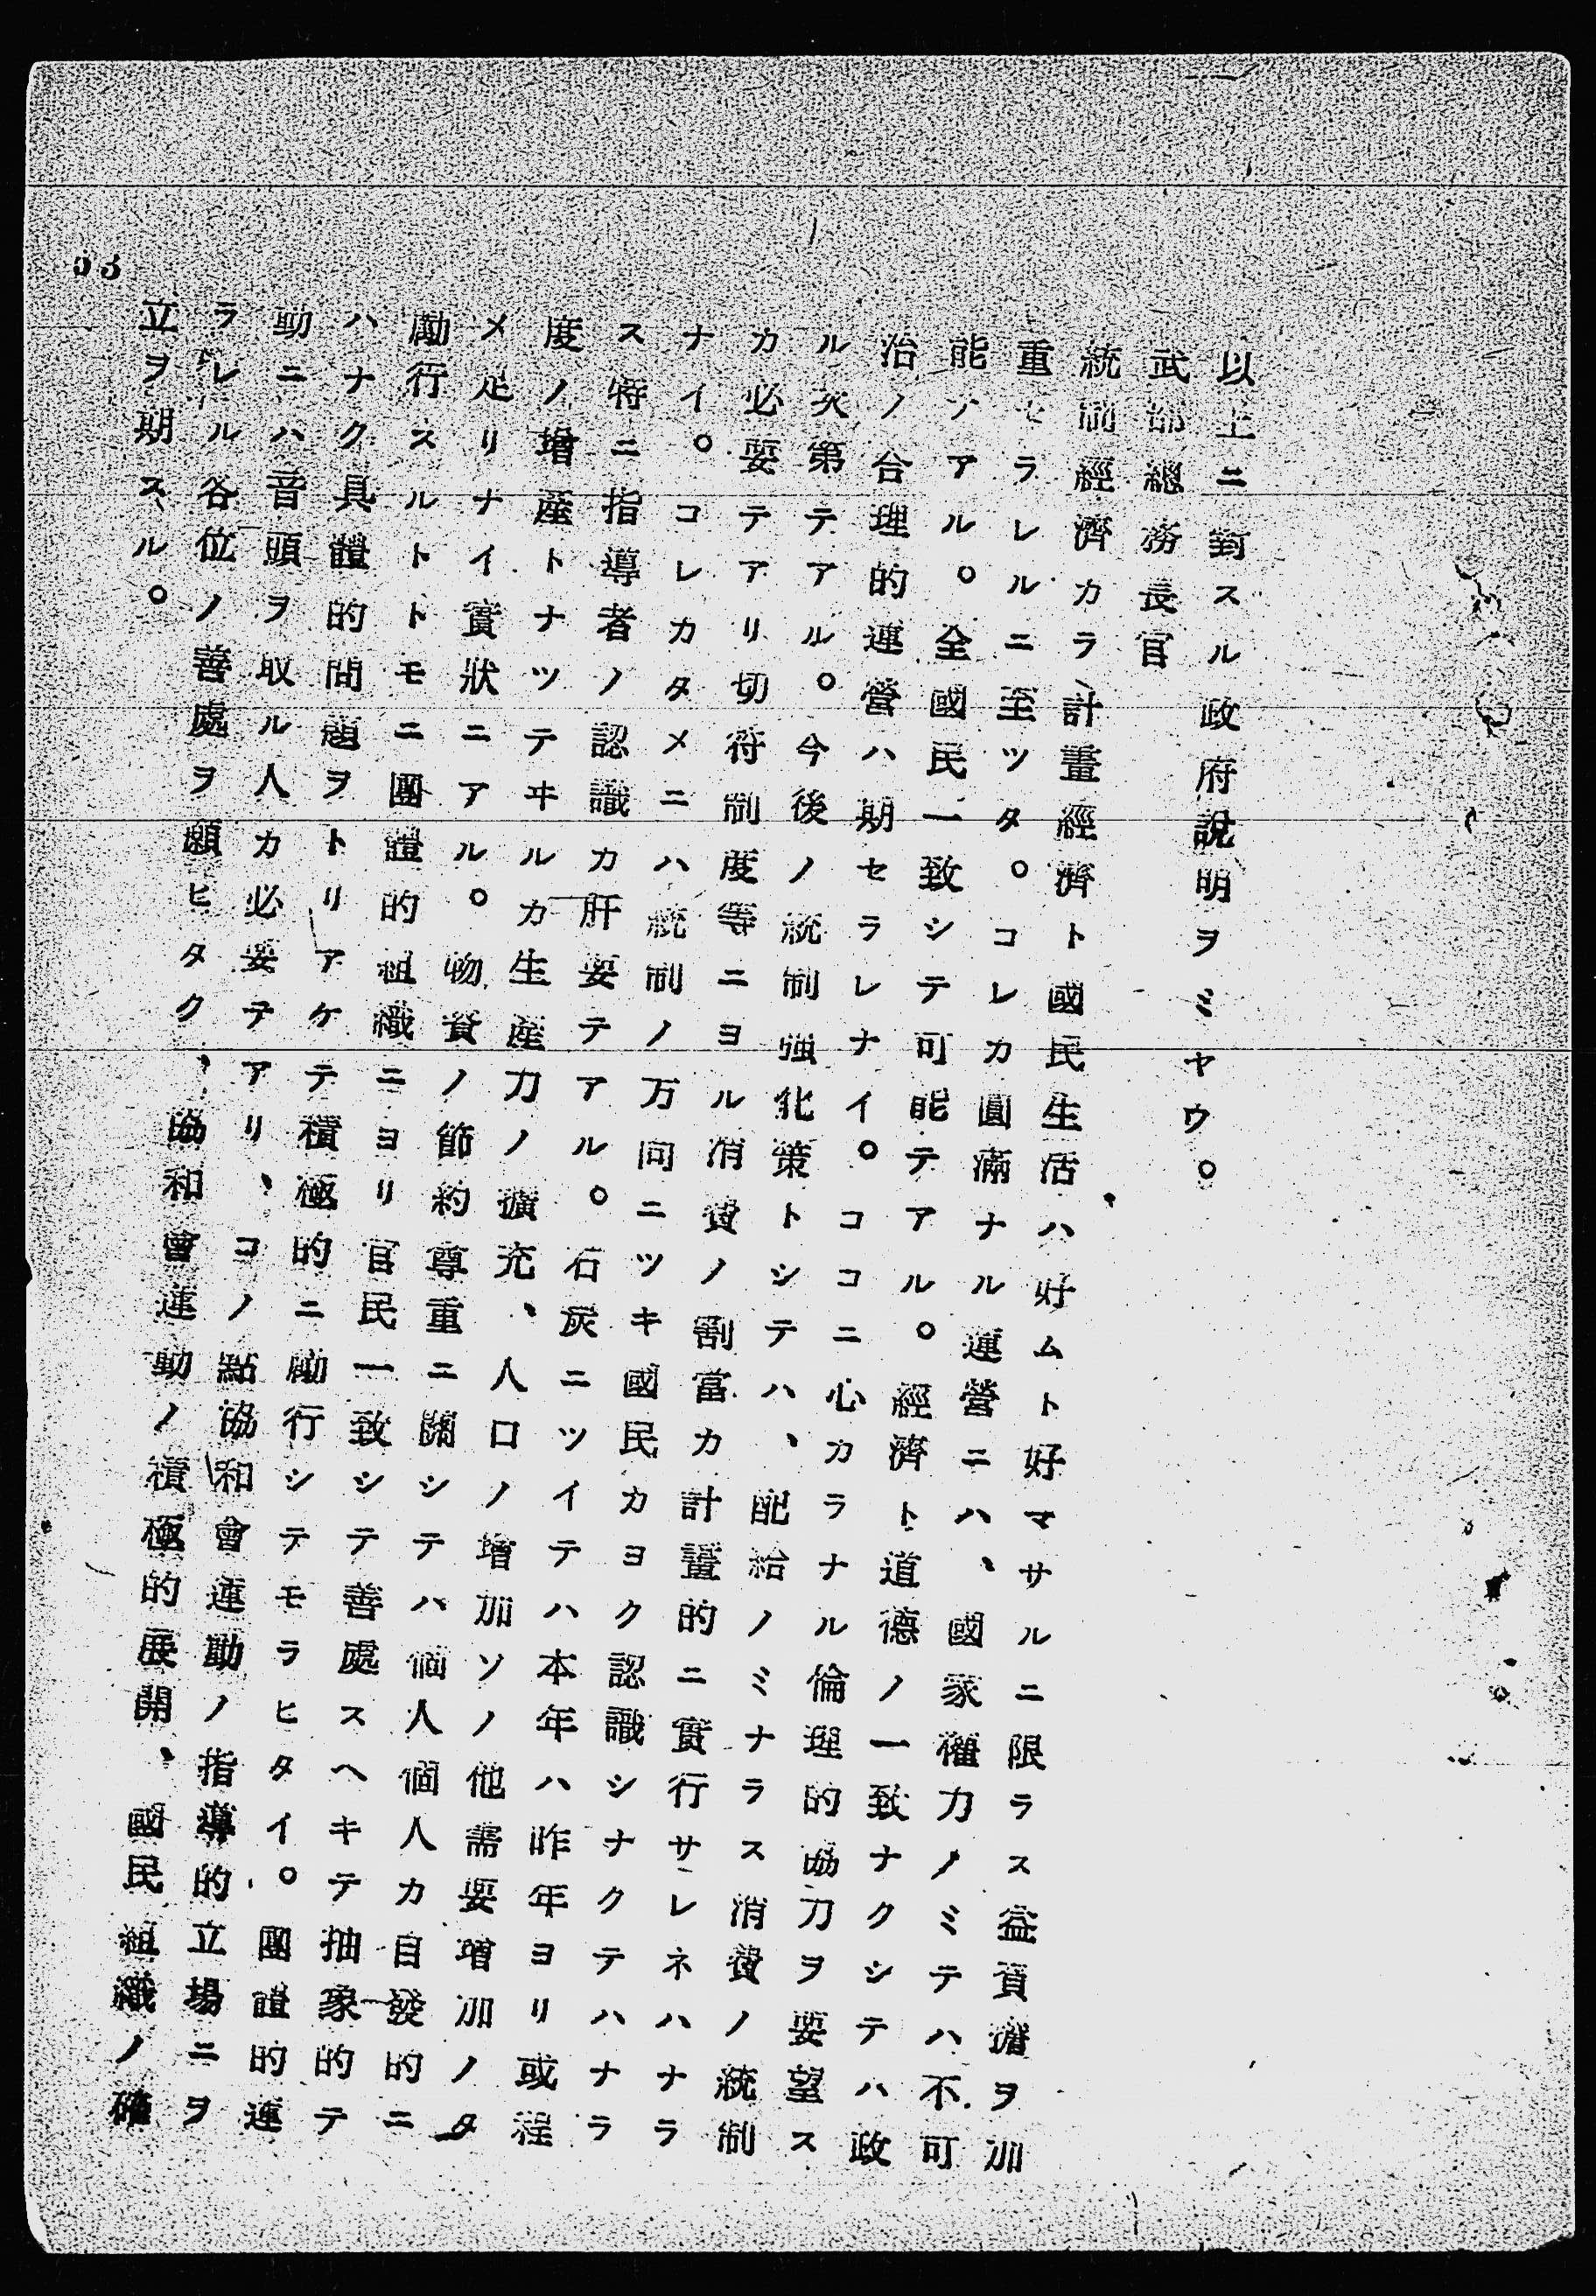 以上ニ對スル政府說明ヲミヤウ。
武部總務長官
統制經濟カラ計畫經濟ト國民生活ハ好ムト好マサルニ限ラス益資濟ヲ加
重セラレルニ至ツタ。コレカ圓滿ナル運營ニハ、國家權力ノミテハ不可
能テアル。全國民一致シテ可能テアル。經濟ト道德ノ一致ナクシテハ政
治ノ合理的運營ハ期セラレナイ。ココニ心カラナル倫理的協力ヲ要望ス
ル次第テアル。今後ノ統制強化策トシテハ、配給ノミナラス消費ノ統制
カ必要テアリ切符制度等ニヨル消費ノ割當カ計畫的ニ實行サレネハナラ
ナイ。コレカタメニハ統制ノ万向ニツキ國民カヨク認識シナクテハナラ
ス特ニ指導者ノ認識カ肝要テアル。石炭ニツイテハ本年ハ昨年ヨリ或程
度ノ增產トナツテヰルカ生產力ノ擴充、人口ノ增加ソノ他需要增加ノタ
メ足リナイ實狀ニアル。物資ノ節約尊重ニ關シテハ個人個人カ自發的ニ
勵行スルトトモニ團體的組織ニヨリ官民一致シテ善處スヘキテ抽象的テ
ハナク具體的問題ヲトリアケテ積極的ニ勵行シテモラヒタイ。團體的運
動ニハ音頭ヲ取ル人カ必要テアリ、コノ點協和會運動ノ指導的立場ニヲ
ラレル各位ノ善處ヲ願ヒタク、協和會運動ノ積極的展開、國民組織ノ確
立ヲ期スル。
53